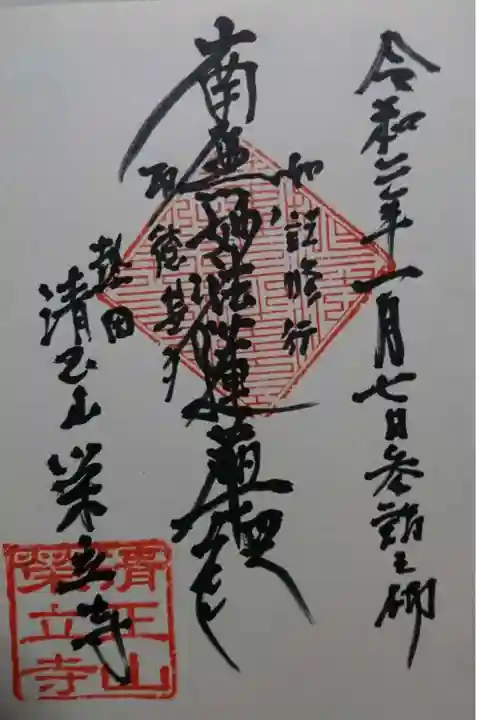 令和二年一月七日参詣之砌
如説修行
南無妙法蓮華経
功徳甚多
熱田
清正山 栄立寺
清正山
榮立寺